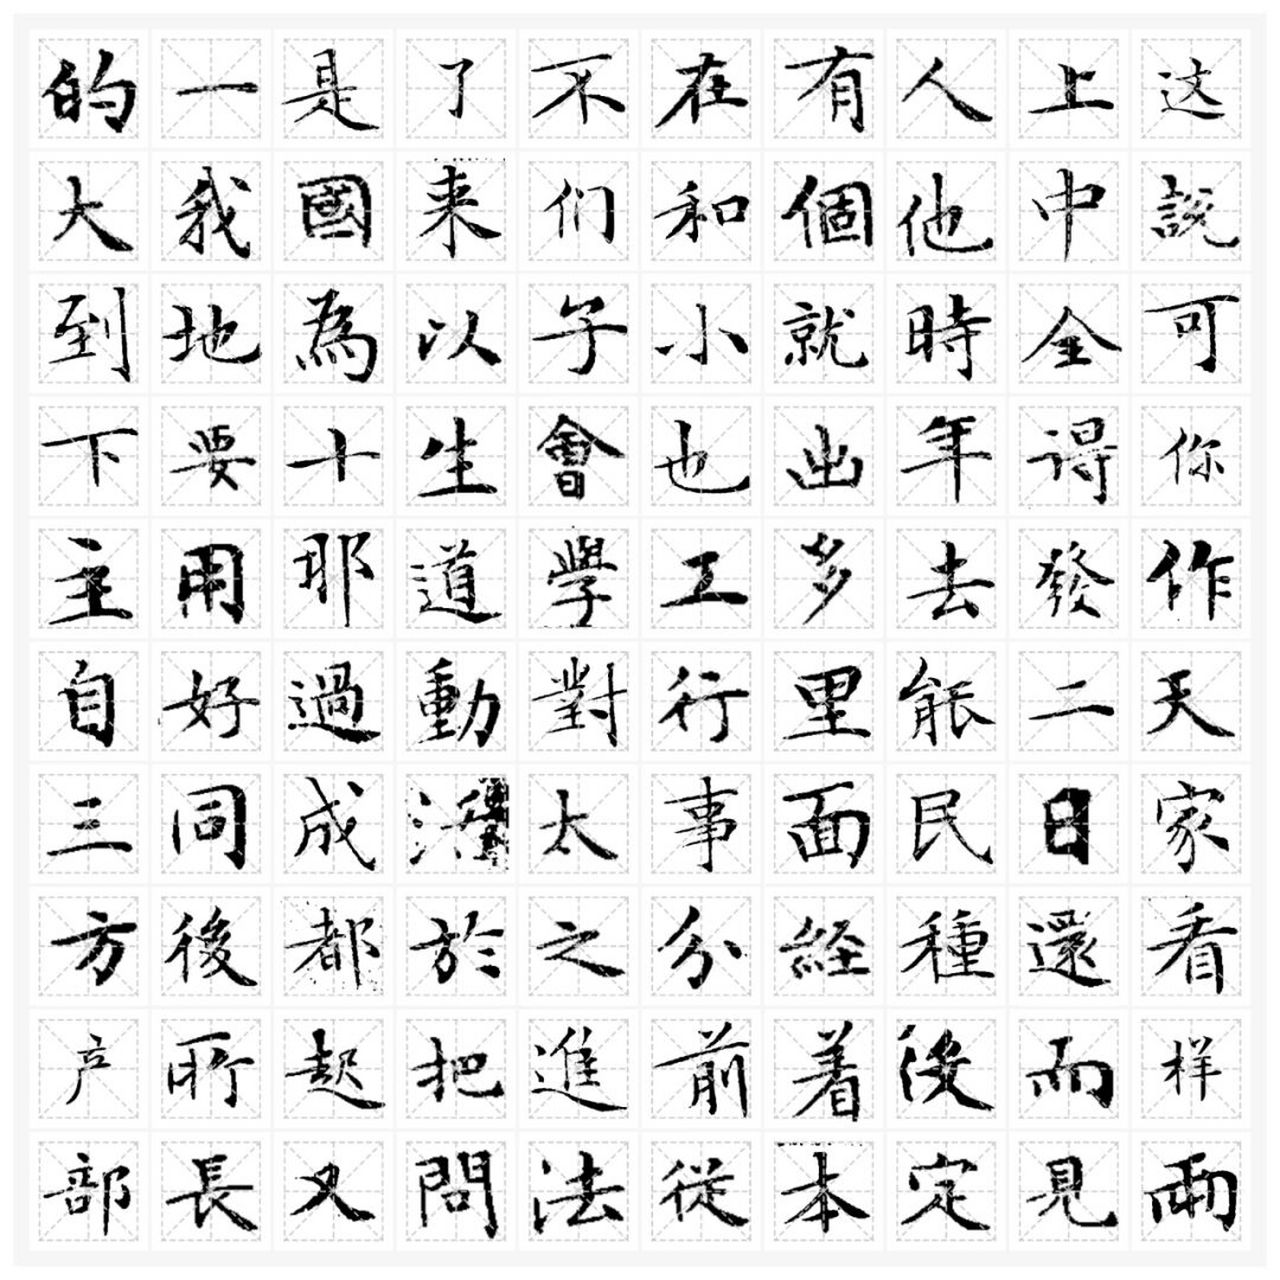 的一是了不在有人上这
大我國来们和個他中説
到地為以子小就時全可
下要十生會也出年得你
主用耶道學工多去發作
自好過動對行里能二天
三同成太事面民日家
方後都於之分経種還看
产所起把進前着没而样
部長又問法從本定見兩